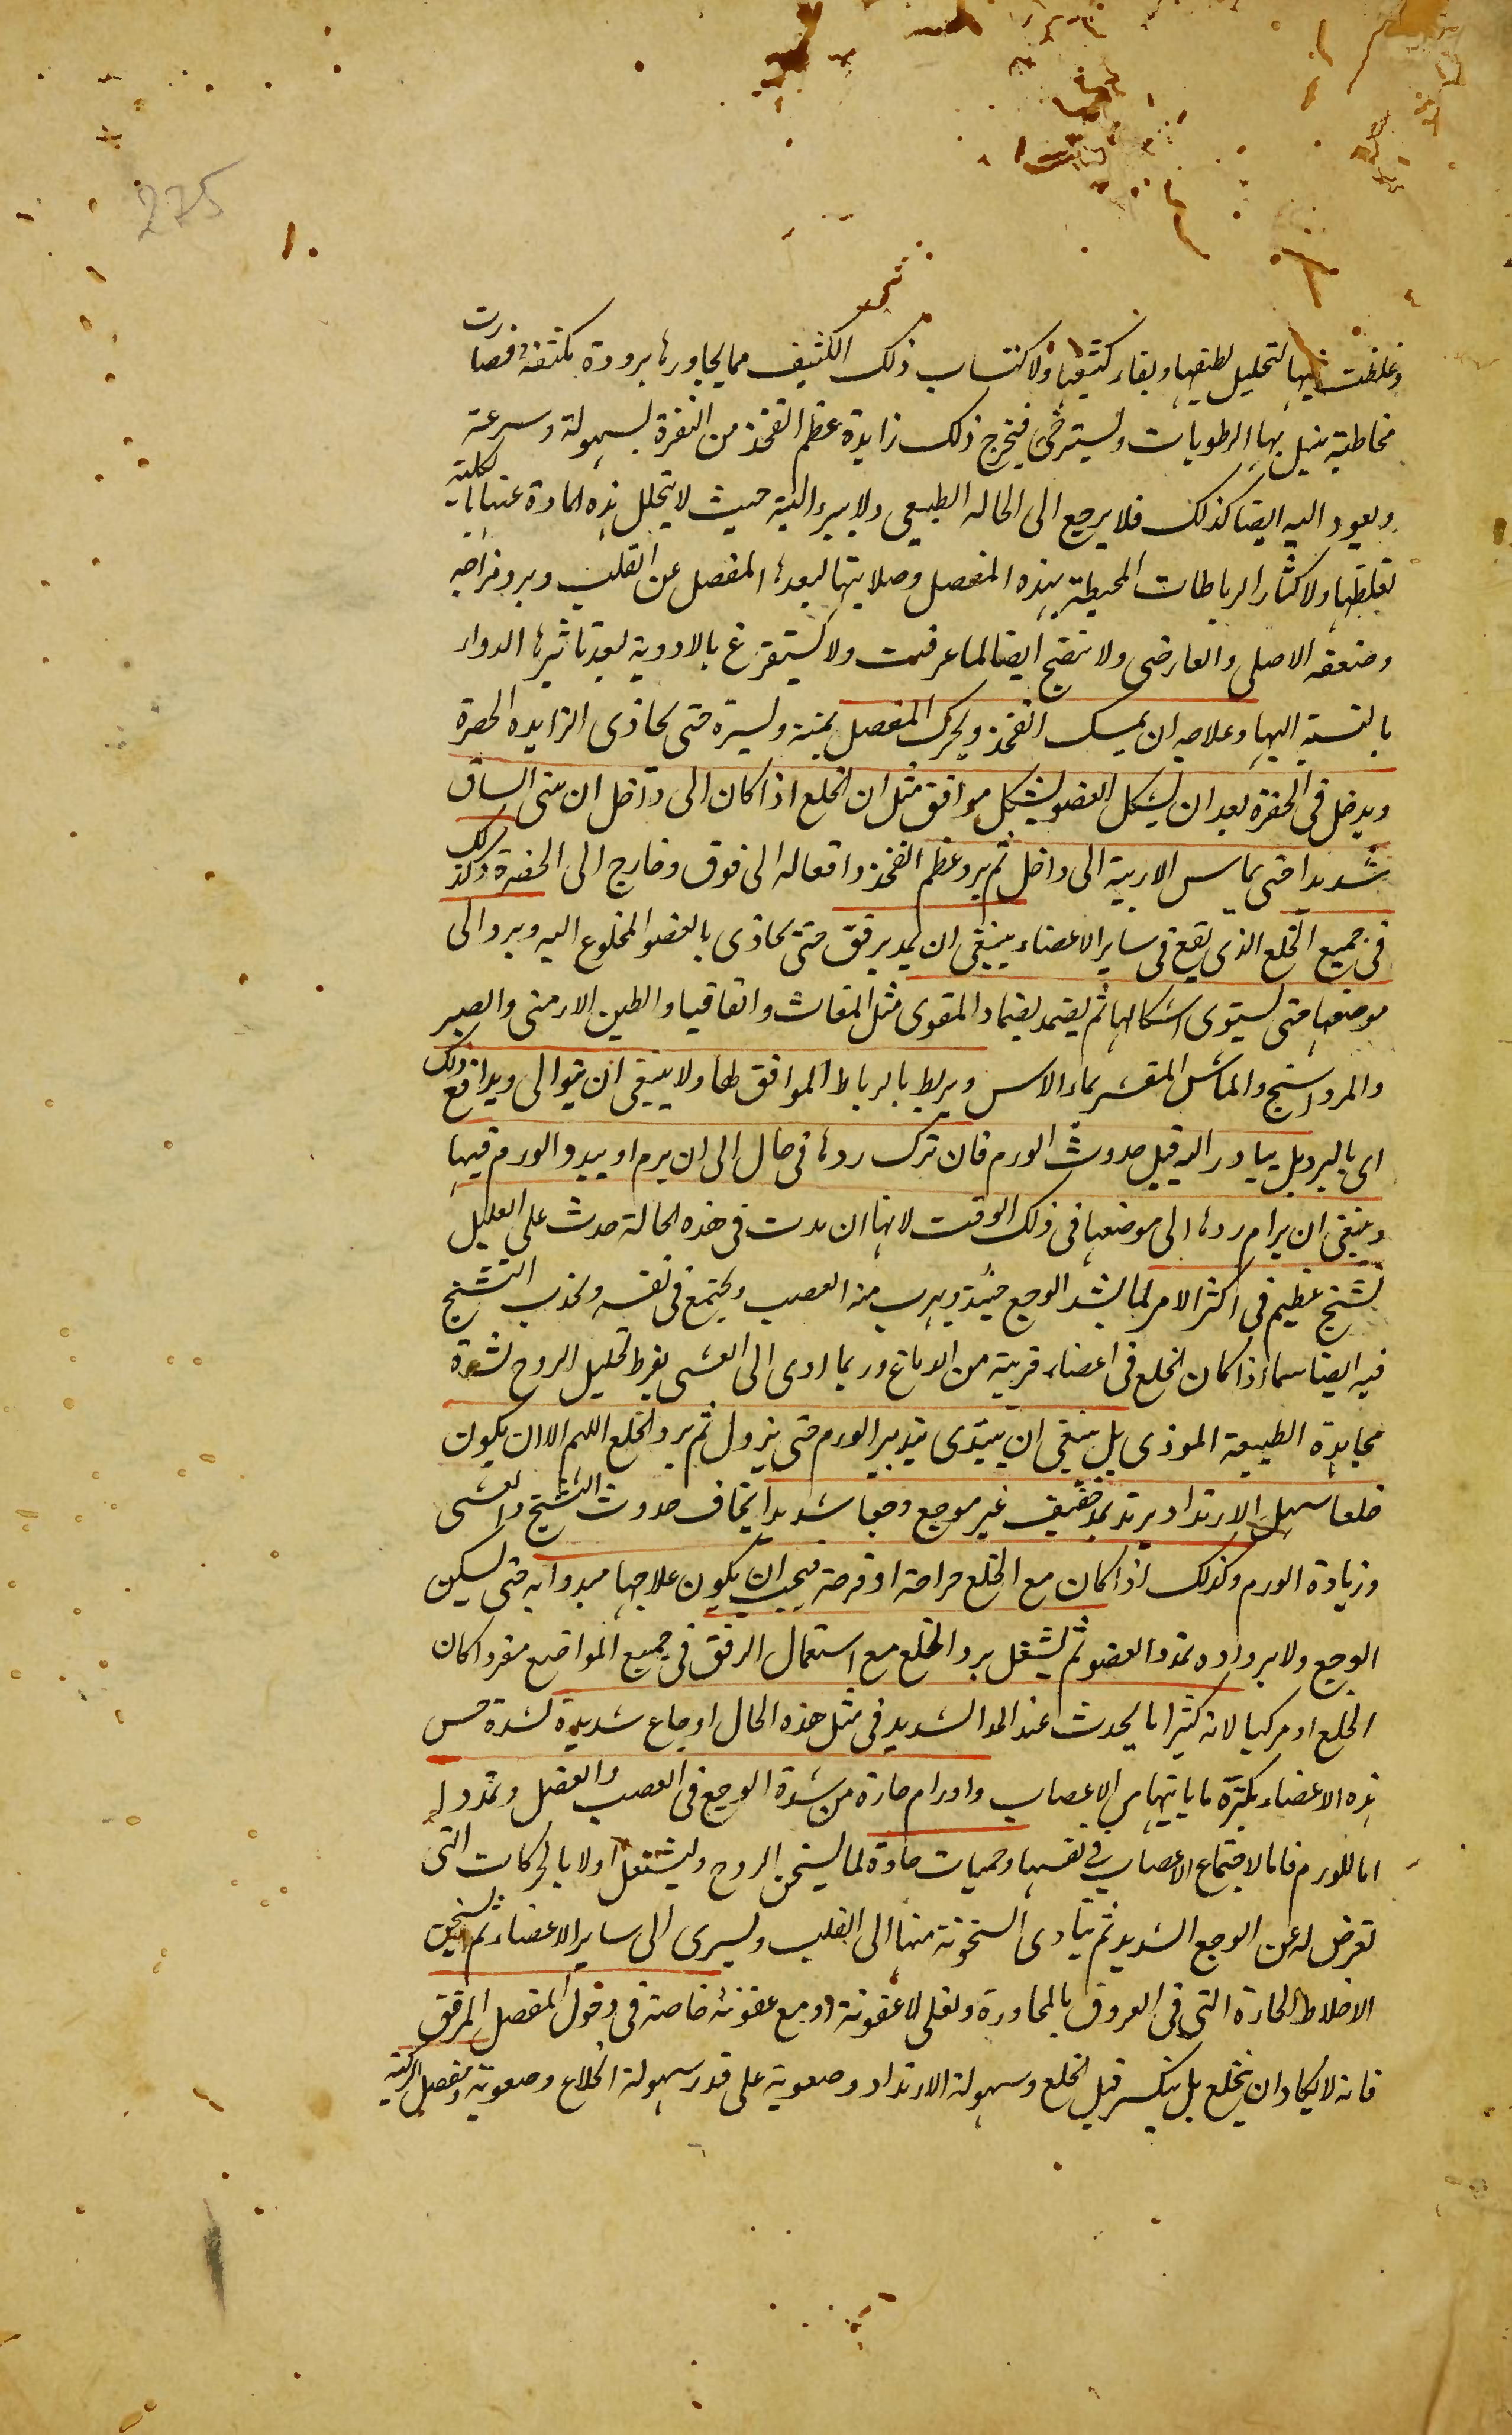 275
وغلظت فيها لتحليل لطيفها وبقاء كثيفها ولاكتساب ذلك الكثيف مما يجاورها برودة مكثفة فصارت
مخاطية يبتل بها الرطوبات ويسترخى فيخرج ذلك زايدة عظم الفخذ من النقرة بسهولة وسرعة
ويعود اليه ايضا كذلك فلا يرجع الى الحالة الطبيعى ولا يبرء البتة حيث لا يتحلل هذه المادة عنها بالكلية
لغلظها ولاكثار الرباطات المحيطة بهذه المفصل وصلابتها لبعد هذا المفصل عن القلب وبرد مزاجه
وضعفه الاصلى والعارضى ولا ينضج ايضا لما عرفت ولا يستفرغ بالادوية لبعد تاثيرها الدواء
بالنسبة اليها وعلاجه ان يمسك الفخذ ويحرك المفصل يمنة ويسرة حتى يحاذى الزايده الحفرة
ويدخل فى الحفرة بعد ان يشكل العضو بشكل موافق مثل ان الخلع اذا كان الى داخل ان يثنى الساق
شديدا حتى يماس الاربية الى داخل ثم يرد عظم الفخذ واقعاله الى فوق وخارج الى الحفرة وكذلك
فى جميع الخلع الذى يقع فى ساير الاعضاء ينبغى ان يمد برفق حتى يحاذى بالعضو المخلوع اليه ويرد الى
موضعها حتى يستوى اشكالها ثم يضمد بضماد المقوى مثل المغاث واقاقيا والطين الارمنى والصبر
والمرداسنج والماش المقشر بماء الاس ويربط بالرباط الموافق لها ولا ينبغى ان يتوالى ويدافع ذلك
اى بالرد بل يبادر اليه قبل حدوث الورم فان ترك ردها فى حال الى ان يرم او يبدو الورم فيها
وينبغى ان يرام ردها الى موضعها فى ذلك الوقت لانها ان مدت فى هذه الحالة حدث على العليل
تشنج عظيم فى اكثر الامر لما يشتد الوجع حينئذ ويهرب منه العصب ويجتمع فى نفسه ويحدث التشنج
فيه ايضا سيما اذا كان الخلع فى اعضاء قريبة من الدماغ وربما ادى الى الغشى بفرط تحليل الروح لشدة
مجاهدة الطبيعة الموذى بل ينبغى ان يبتدى بتدبير الورم حتى يزول ثم يرد الخلع اللهم الا ان يكون
خلعا سهل الارتداد يرتد بمد خفيف غير موجع وجعا شديدا يخاف حدوث التشنج والغشى
وزيادة الورم وكذلك اذا كان مع الخلع جراحة او قرحة فيجب ان يكون علاجها مبدوا به حتى يسكن
الوجع ولا يرداده بمدد العضو ثم يشتغل برد الخلع مع استعمال الرفق فى جميع المواضع مفردا كان
الخلع او مركبا لانه كثيرا ما يحدث عند المد الشديد فى مثل هذه الحال اوجاع شديدة لشدة حس
هذه الاعضاء بكثرة ما ياتيها من الاعصاب واورام حارة من شدة الوجع فى العصب والعضل وتمدد له
اما للورم فاما لاجتماع الاعصاب فى نفسها وحميات حادة لما يسخن الروح ويشتعل اولا بالحركات التى
تعرض له عن الوجع الشديد ثم يتادى السخونة منها الى القلب ويسرى الى ساير الاعضاء ثم يسخن
الاخلاط الحارة التى فى العروق بالمجاورة وتغلى لا عفونة او مع عفونة خاصة فى دخول المفصل المرفق
فانه لا يكاد ان ينخلع بل ينكسر قبل الخلع وسهولة الارتداد وصعوبة على قدر سهولة انخلاع وصعوبة ومفصل الركبة